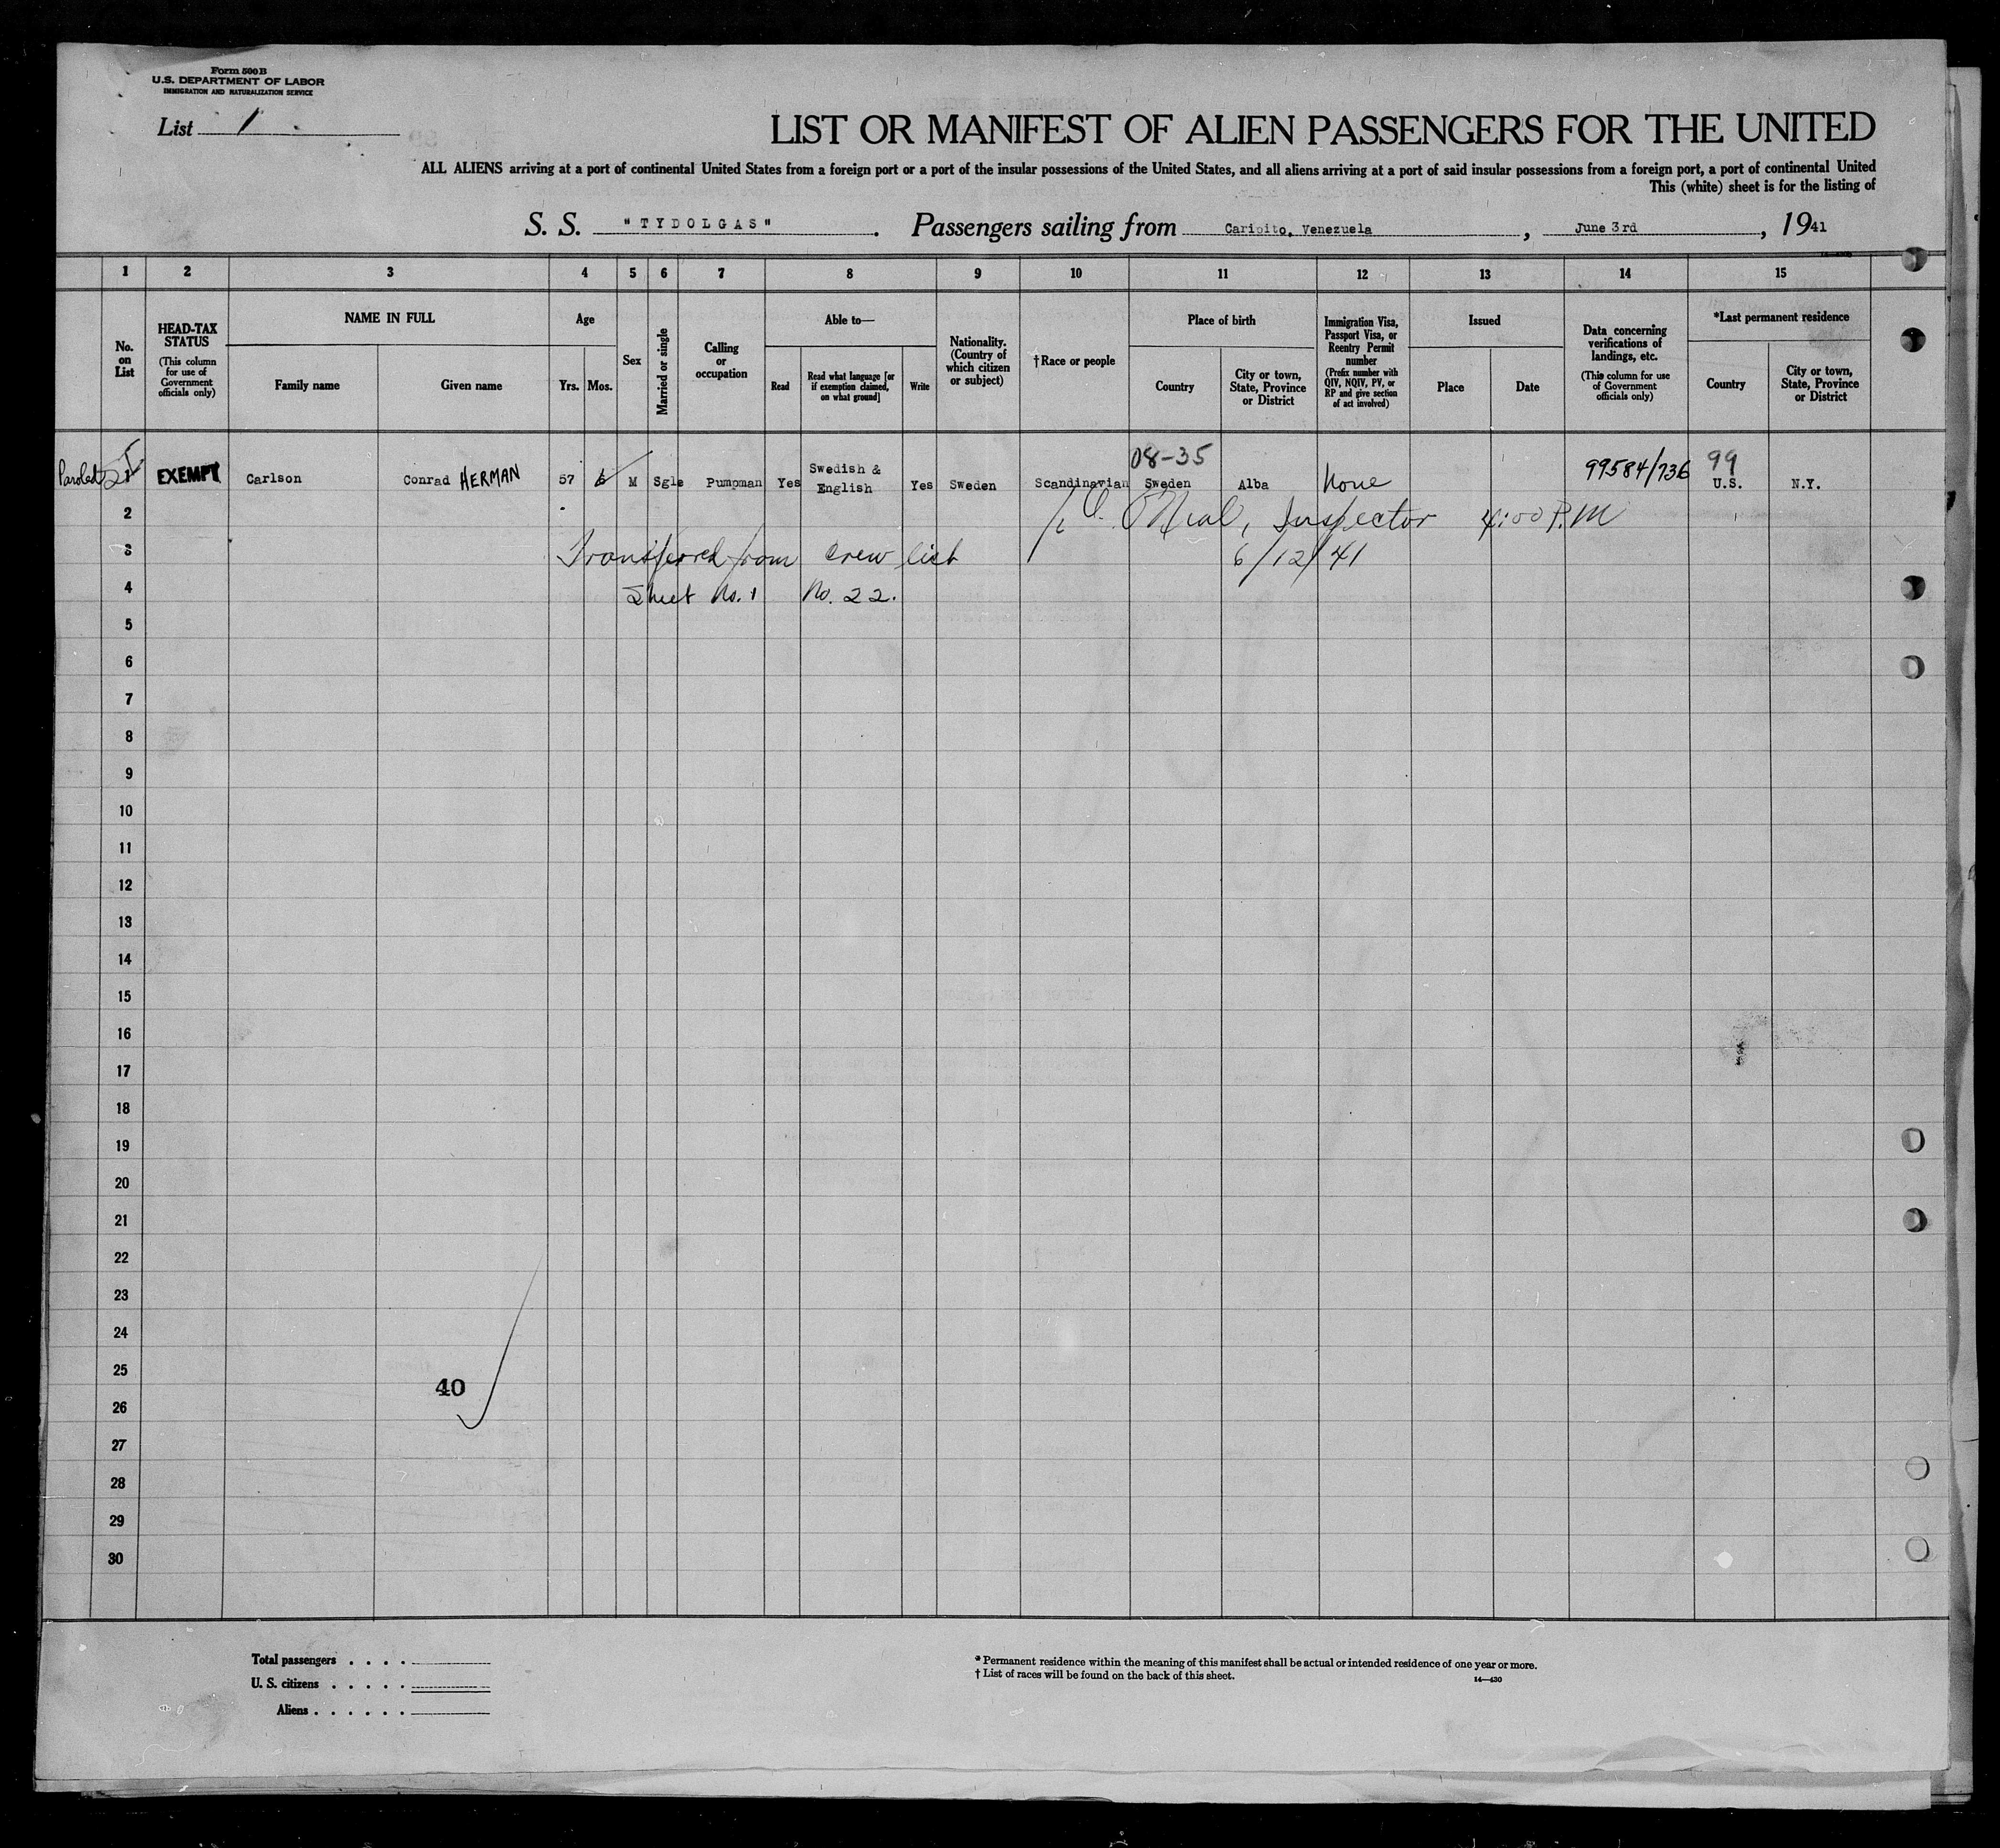 Form 500 B
U.S. DEPARTMENT OF LABOR
IMMIGRATION AND NATURALIZATION SERVICE
List 1
LIST OR MANIFEST OF ALIEN PASSENGERS FOR THE UNITED
ALL ALIENS arriving at a port of continental United States from a foreign port or a port of the insular possessions of the United States, and all aliens arriving at a port of said insular possessions from a foreign port, a port of continental United
This (white) sheet is for the listing of
S. S. "TYDOLGAS". Passengers sailing from Caripito, Venezuela, June 3rd, 1941
1 2 3 4 5 6 7 8 9 10 11 12 13 14 15
No. on List
HEAD-TAX STATUS
(This column for use of Government officials only)
NAME IN FULL
Family name
Given name
Age
Yrs.
Mos.
Sex
Married or single
Calling or occupation
Able to—
Read
Read what language [or if exemption claimed, on what ground]
Write
Nationality. (Country of which citizen or subject)
†Race or people
Place of birth
Country
City or town, State, Province or District
Immigration Visa, Passport Visa, or Reentry Permit number
(Prefix number with QIV, NQIV, PV, or RP and give section of act involved)
Issued
Place
Date
Data concerning verifications of landings, etc.
(This column for use of Government officials only)
*Last permanent residence
Country
City or town, State, Province or District
08-35
99
Paroled 1 EXEMPT Carlson Conrad HERMAN 57 6 M Sgle Pumpman Yes Swedish & English Yes Sweden Scandinavian Sweden Alba None 99584/736 U.S. N.Y.
2 O'Neal, Inspector 4:00 P.M
3 Transferred from crew list 6/12/41
4 Sheet No. 1 No. 22.
5
6
7
8
9
10
11
12
13
14
15
16
17
18
19
20
21
22
23
24
25
40
26
27
28
29
30
Total passengers . . . .
U. S. citizens . . . . .
Aliens . . . . . .
* Permanent residence within the meaning of this manifest shall be actual or intended residence of one year or more.
† List of races will be found on the back of this sheet.
14—430